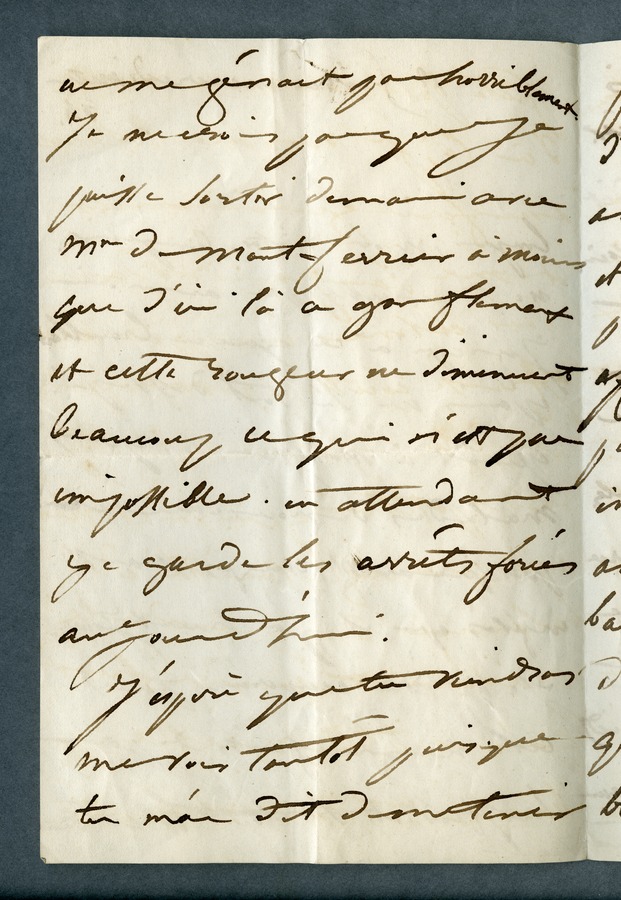 ne me gênait pas horriblement.
Je ne crois pas que je
puisse sortir demain avec
Mme de Montferrier à moins
que d'ici là ce gonflement
et cette rougeur ne diminuent
beaucoup ce qui n'est pas
impossible. en attendant
je garde les arrêts forcés
aujourd'hui.
J'espère que tu viendras
me voir tantôt puisque
tu m'as dit de me tenir